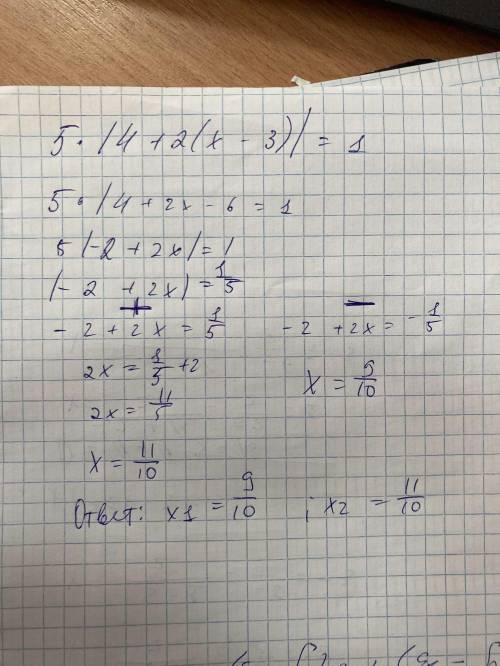 5 · |4 + 2(x - 3)| = 1
5 · |4 + 2x - 6 = 1
5 |-2 + 2x| = 1
|-2 + 2x| = 1/5
+ −
-2 + 2x = 1/5 -2 + 2x = -1/5
2x = 1/5 + 2 x = 9/10
2x = 11/5
x = 11/10
Ответ: x1 = 9/10 ; x2 = 11/10